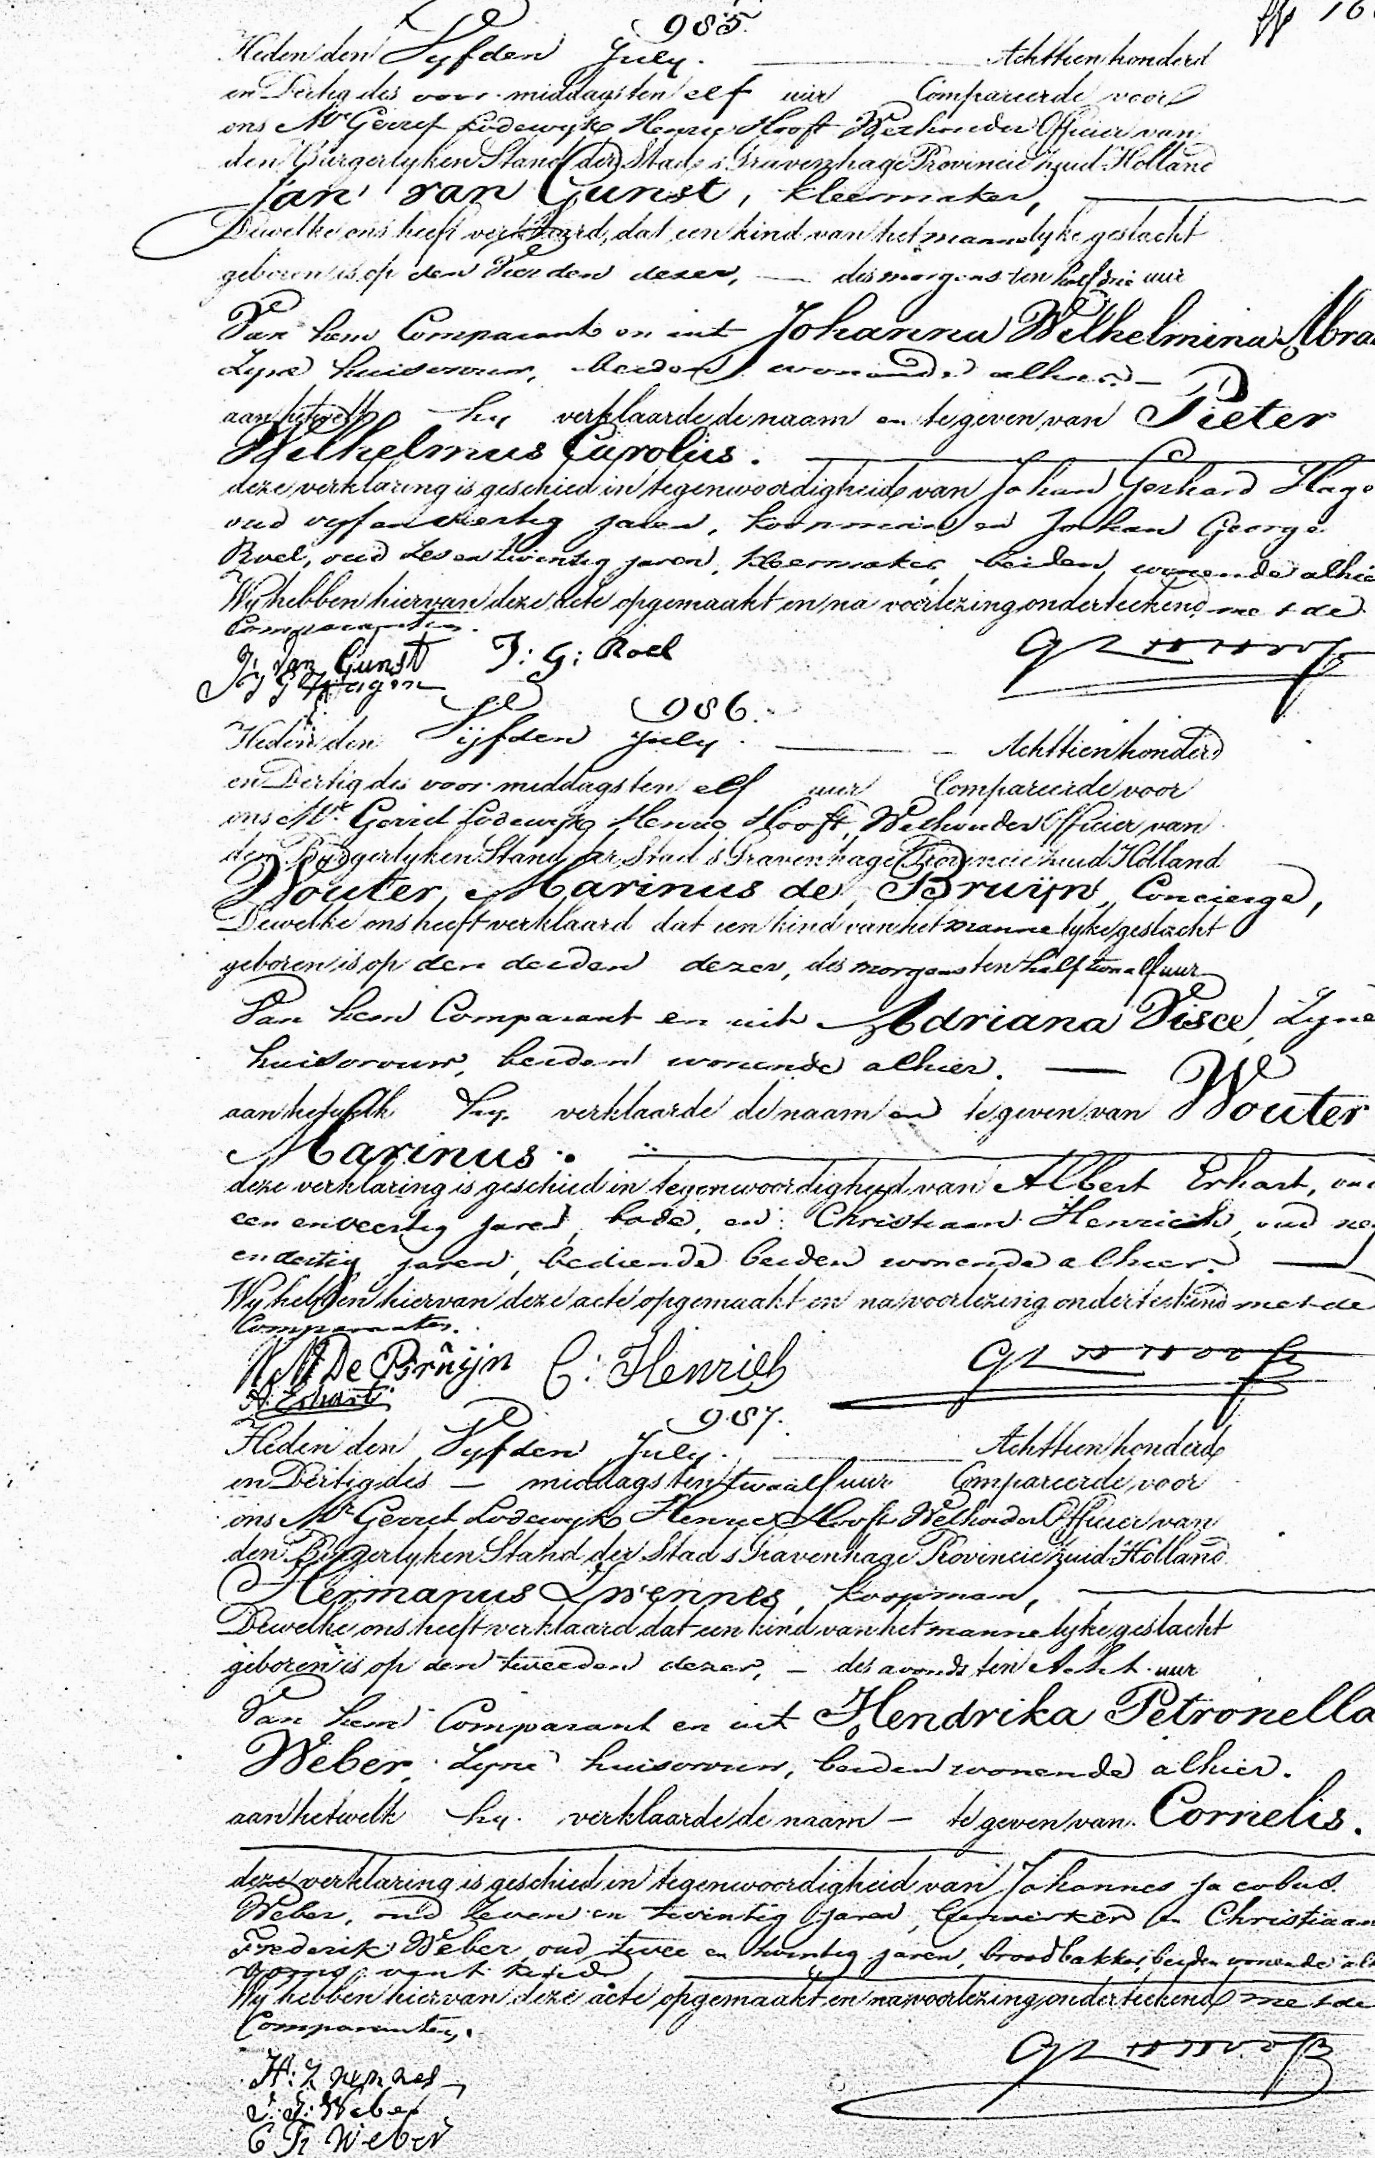 985.
Heden den Vyfden July. Achttienhonderd
en Dertig des voor middags ten elf uur Compareerde voor
ons Mr Gerret Lodewyk Henry Hooft Wethouder Officier van
den Burgerlyken Stand der Stad s Gravenhage Provincie Zuid Holland
Jan van Gunst, kleermaker,
Dewelke ons heeft verklaard, dat een kind van het mannelyke geslacht
geboren is op den Vierden dezer, des morgens ten half drie uur
Van hem Comparant en uit Johanna Wilhelmina Abra
Zyne huisvrouw, beiden wonende alhier.
aan hetwelk hy verklaarde de naam en te geven van Pieter
Wilhelmus Carolus.
deze verklaring is geschied in tegenwoordigheid van Johan Gerhard Hage
oud vyf en veertig jaren, koopman en Johan George
Roel, oud zes en twintig jaren, kleermaker, beiden wonende alhie
Wy hebben hiervan deze acte opgemaakt en na voorlezing onderteekend met de
Comparanten.
J: van Gunst J: G: Roel
J G Hagen
986.
Heden den Vijfden July. Achttienhonderd
en Dertig des voor middags ten elf uur Compareerde voor
ons Mr. Gerret Lodewyk Henry Hooft, Wethouder Officier van
den Burgerlyken Stand der Stad s Gravenhage Provincie Zuid Holland
Wouter Marinus de Bruijn, Concierge,
Dewelke ons heeft verklaard dat een kind van het mannelyke geslacht
geboren is op den derden dezer, des morgens ten half twaalf uur
Van hem Comparant en uit Adriana Visce, Zyne
huisvrouw, beiden wonende alhier.
aan hetwelk hy verklaarde de naam en te geven van Wouter
Marinus.
deze verklaring is geschied in tegenwoordigheid van Albert Erhart, oud
een en veertig jaren, bode, en Christiaan Henrich, oud neg
en dertig jaren, bediende beiden wonende alhier.
Wy hebben hiervan deze acte opgemaakt en na voorlezing onderteekend met de
Comparanten.
W M De Bruijn C: Henrich
A: Erhart
987.
Heden den Vyfden July. Achttienhonderd
en Dertig des middags ten twaalf uur Compareerde voor
ons Mr Gerret Lodewyk Henry Hooft Wethouder Officier van
den Burgerlyken Stand der Stad s Gravenhage Provincie Zuid Holland
Hermanus Zwennes, koopman,
Dewelke ons heeft verklaard dat een kind van het mannelyke geslacht
geboren is op den tweeden dezer, des avonds ten Acht uur
Van hem Comparant en uit Hendrika Petronella
Weber, Zyne huisvrouw, beiden wonende alhier.
aan hetwelk hy verklaarde de naam te geven van Cornelis.
deze verklaring is geschied in tegenwoordigheid van Johannes Jacobus
Weber, oud zeven en twintig jaren, en Christiaan
Frederik Weber oud twee en twintig jaren, broodbakker, beiden wonende al
van t kind
Wy hebben hiervan deze acte opgemaakt en na voorlezing onderteekend met de
Comparanten.
H: Zwennes
J: J: Weber
C Fr Weber